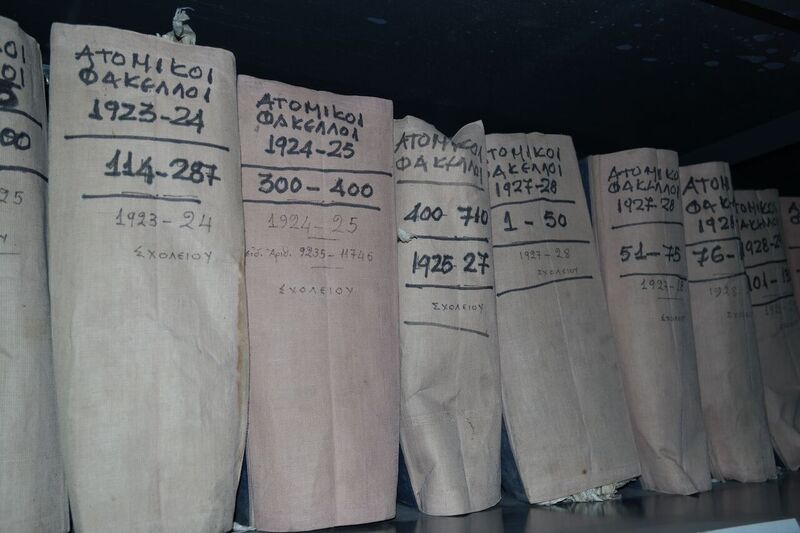 ΑΤΟΜΙΚΟΙ
ΦΑΚΕΛΛΟΙ
1923-24
114-287
1923-24
ΣΧΟΛΕΙΟΥ
ΑΤΟΜΙΚΟΙ
ΦΑΚΕΛΛΟΙ
1924-25
300-400
1924-25
Αριθ. 9235-11746
ΣΧΟΛΕΙΟΥ
ΑΤΟΜΙΚΟΙ
ΦΑΚΕΛΛΟΙ
400-710
1925-27
ΣΧΟΛΕΙΟΥ
ΑΤΟΜΙΚΟΙ
ΦΑΚΕΛΛΟΙ
1927-28
1-50
1927-28
ΣΧΟΛΕΙΟΥ
ΑΤΟΜΙΚΟΙ
ΦΑΚΕΛΛΟΙ
1927-28
51-75
1927-28
ΣΧΟΛΕΙΟΥ
ΑΤΟΜ
ΦΑΚ
1928
76-
1928
1928-29